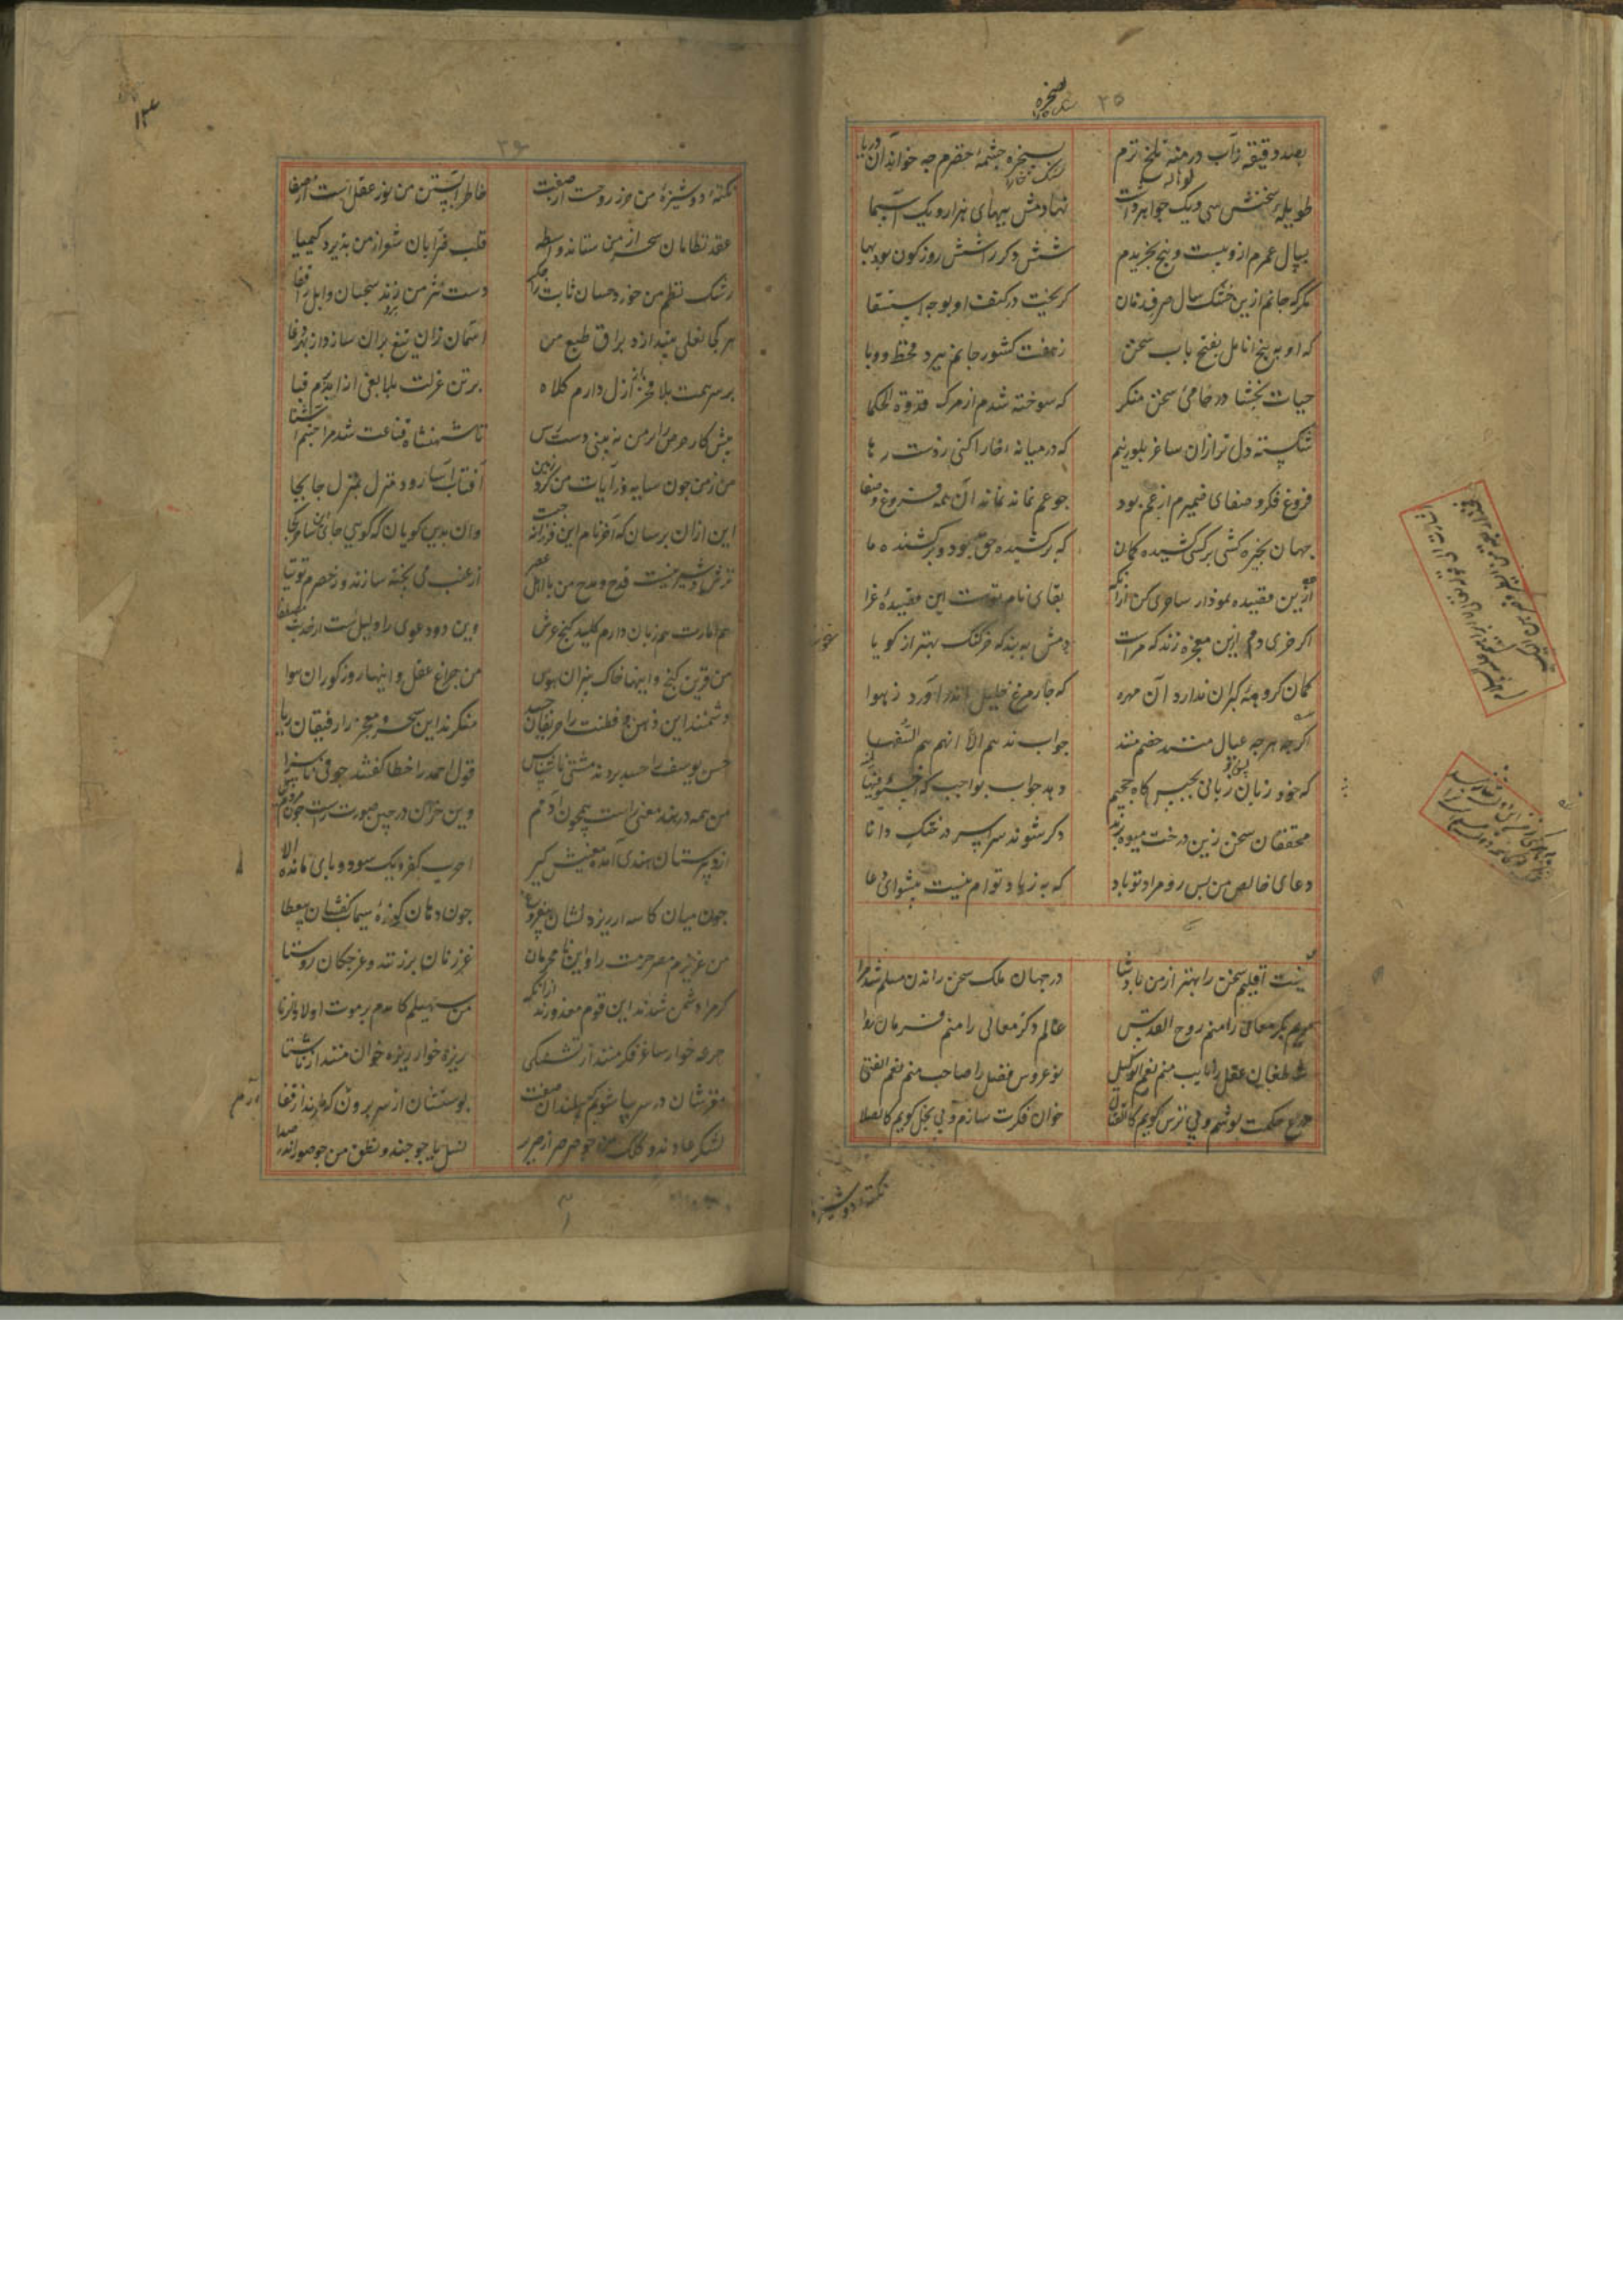 ۲۵
صخره
بصد دقیقه ز آب درمنه تلخ ترم
بسخره چشمهٔ خضرم چه خواند آن دریا
طویلهٔ سخنش سی و یک جواهر داشت
نهادمش ببهای هزار و یک اسما
بسال عمرم ازو بیست و پنج بخریدم
شش دکر را شش روز کون بود بها
مکر که جانم ازین خشک سال صرف زمان
کریخت در کنف او بوجه استسقا
که او به پنج انامل بفتح باب سخن
ز هفت کشور جانم ببرد قحط و وبا
حیات بخشا در خامی سخن منکر
که سوخته شدم از مرک قدوة الحکما
شکسته دل تر ازان ساغر بلورینم
که در میانه خارا کنی ز دست رها
فروغ فکر و صفای ضمیرم از عم بود
چو عم نماند نماند آن همه فروغ و صفا
جهان بخیره کشی بر کسی کشیده کمان
که برکشیده حق بود و برکشنده ما
ازین قصیده نمودار ساحری کن ازانک
بقای نام توست این قصیدهٔ غرا
اکر خری دم ازین معجزه زند که مراست
دمش ببند که خر کنک بهتر از کویا
کمان کروههٔ کبران ندارد آن مهره
که چار مرغ خلیل اندر آورد ز هوا
اکرچه هرچه عیال منند خصم منند
جواب ندهم الا انهم هم السفها
که خود زبان زبانی بحبس کاه جحیم
دهد جواب بواجب که اخسئوا فیها
محققان سخن زین درخت میوه برند
وکر شوند سراسر درختک دانا
دعای خالص من پس رو مراد تو باد
که به ز یاد توام نیست پیشوای دعا
نیست اقلیم سخن را بهتر از من پادشا
در جهان ملک سخن راندن مسلم شد مرا
مریم بکر معانی را منم روح القدس
عالم ذکر معالی را منم فرمان روا
شه طغان عقل را نایب منم نعم الوکیل
نوعروس فضل را صاحب منم نعم الفتی
درع حکمت پوشم و بی ترس کویم کالقتال
خوان فکرت سازم و بی بخل کویم کالصلا
نکتهٔ دوشیزه
۲۶
نکتهٔ دوشیزهٔ من حرز روحست از صفت
خاطر آبستن من نور عقل است از صفا
عقد نظامان سحر از من ستاند واسطه
قلب ضرابان شعر از من پذیرد کیمیا
رشک نظم من خورد حسان ثابت را جکر
دست نثر من زند سحبان وایل را قفا
هر کجا نعلی بیندازد براق طبع من
آسمان زان تیغ بران سازد از بهر غزا
بر سر همت بلا فخر از ازل دارم کلاه
بر تن عزلت بلا بغی از ابد برم قبا
پیش کار حرص را بر من نه بینی دست رس
تا شهنشاه قناعت شد مرا
من زمن چون سایه و آیات من کرد زمین
آفتاب آسا رود منزل بمنزل جابجا
این ازان پرسان که آخر نام این فرزانه چیست
وان بدین کویان که کویی جای این ساحر کجا
ترش و شیرینست قدح و مدح من با اهل عصر
از عنب می پخته سازند و ز حصرم توتیا
هم امارت هم زبان دارم کلید کنج عرش
وین دو دعوی را دلیل است از حدیث مصطفی
من قرین کنج و اینها خاک بیزان هوس
من چراغ عقل و اینها روز کوران هوا
دشمنند این ذهن و فطنت را حریفان حسد
منکرند این سحر و معجز را رفیقان ریا
حسن یوسف را حسد بردند مشتی ناسپاس
قول احمد را خطا کفتند جوقی ناسزا
من همی در هند معنی راست همچون آدمم
وین خران در چین صورت راست چون مردم کیا
چون میان کاسه ارزیز دلشان بی فروغ
چون دهان کوزهٔ سیماب کفشان بی عطا
من عزیزم مصر حرمت را و این نامحرمان
غرزنان برزنند و غرجکان روستا
کر مرا دشمن شدند این قوم معذورند ازانک
من سهیلم کامدم بر موت اولاد زنا
جرعه خوار ساغر فکر منند از تشنکی
ریزه خوار ریزهٔ خوان منند از ناشتا
مغزشان در سر بیاشوبم که پیلند از صفت
پوستشان از سر برون
لشکر عادند و کلک من چو صرصر از صریر
نسل یاجوجند و نطق من چو صور اندر صدا